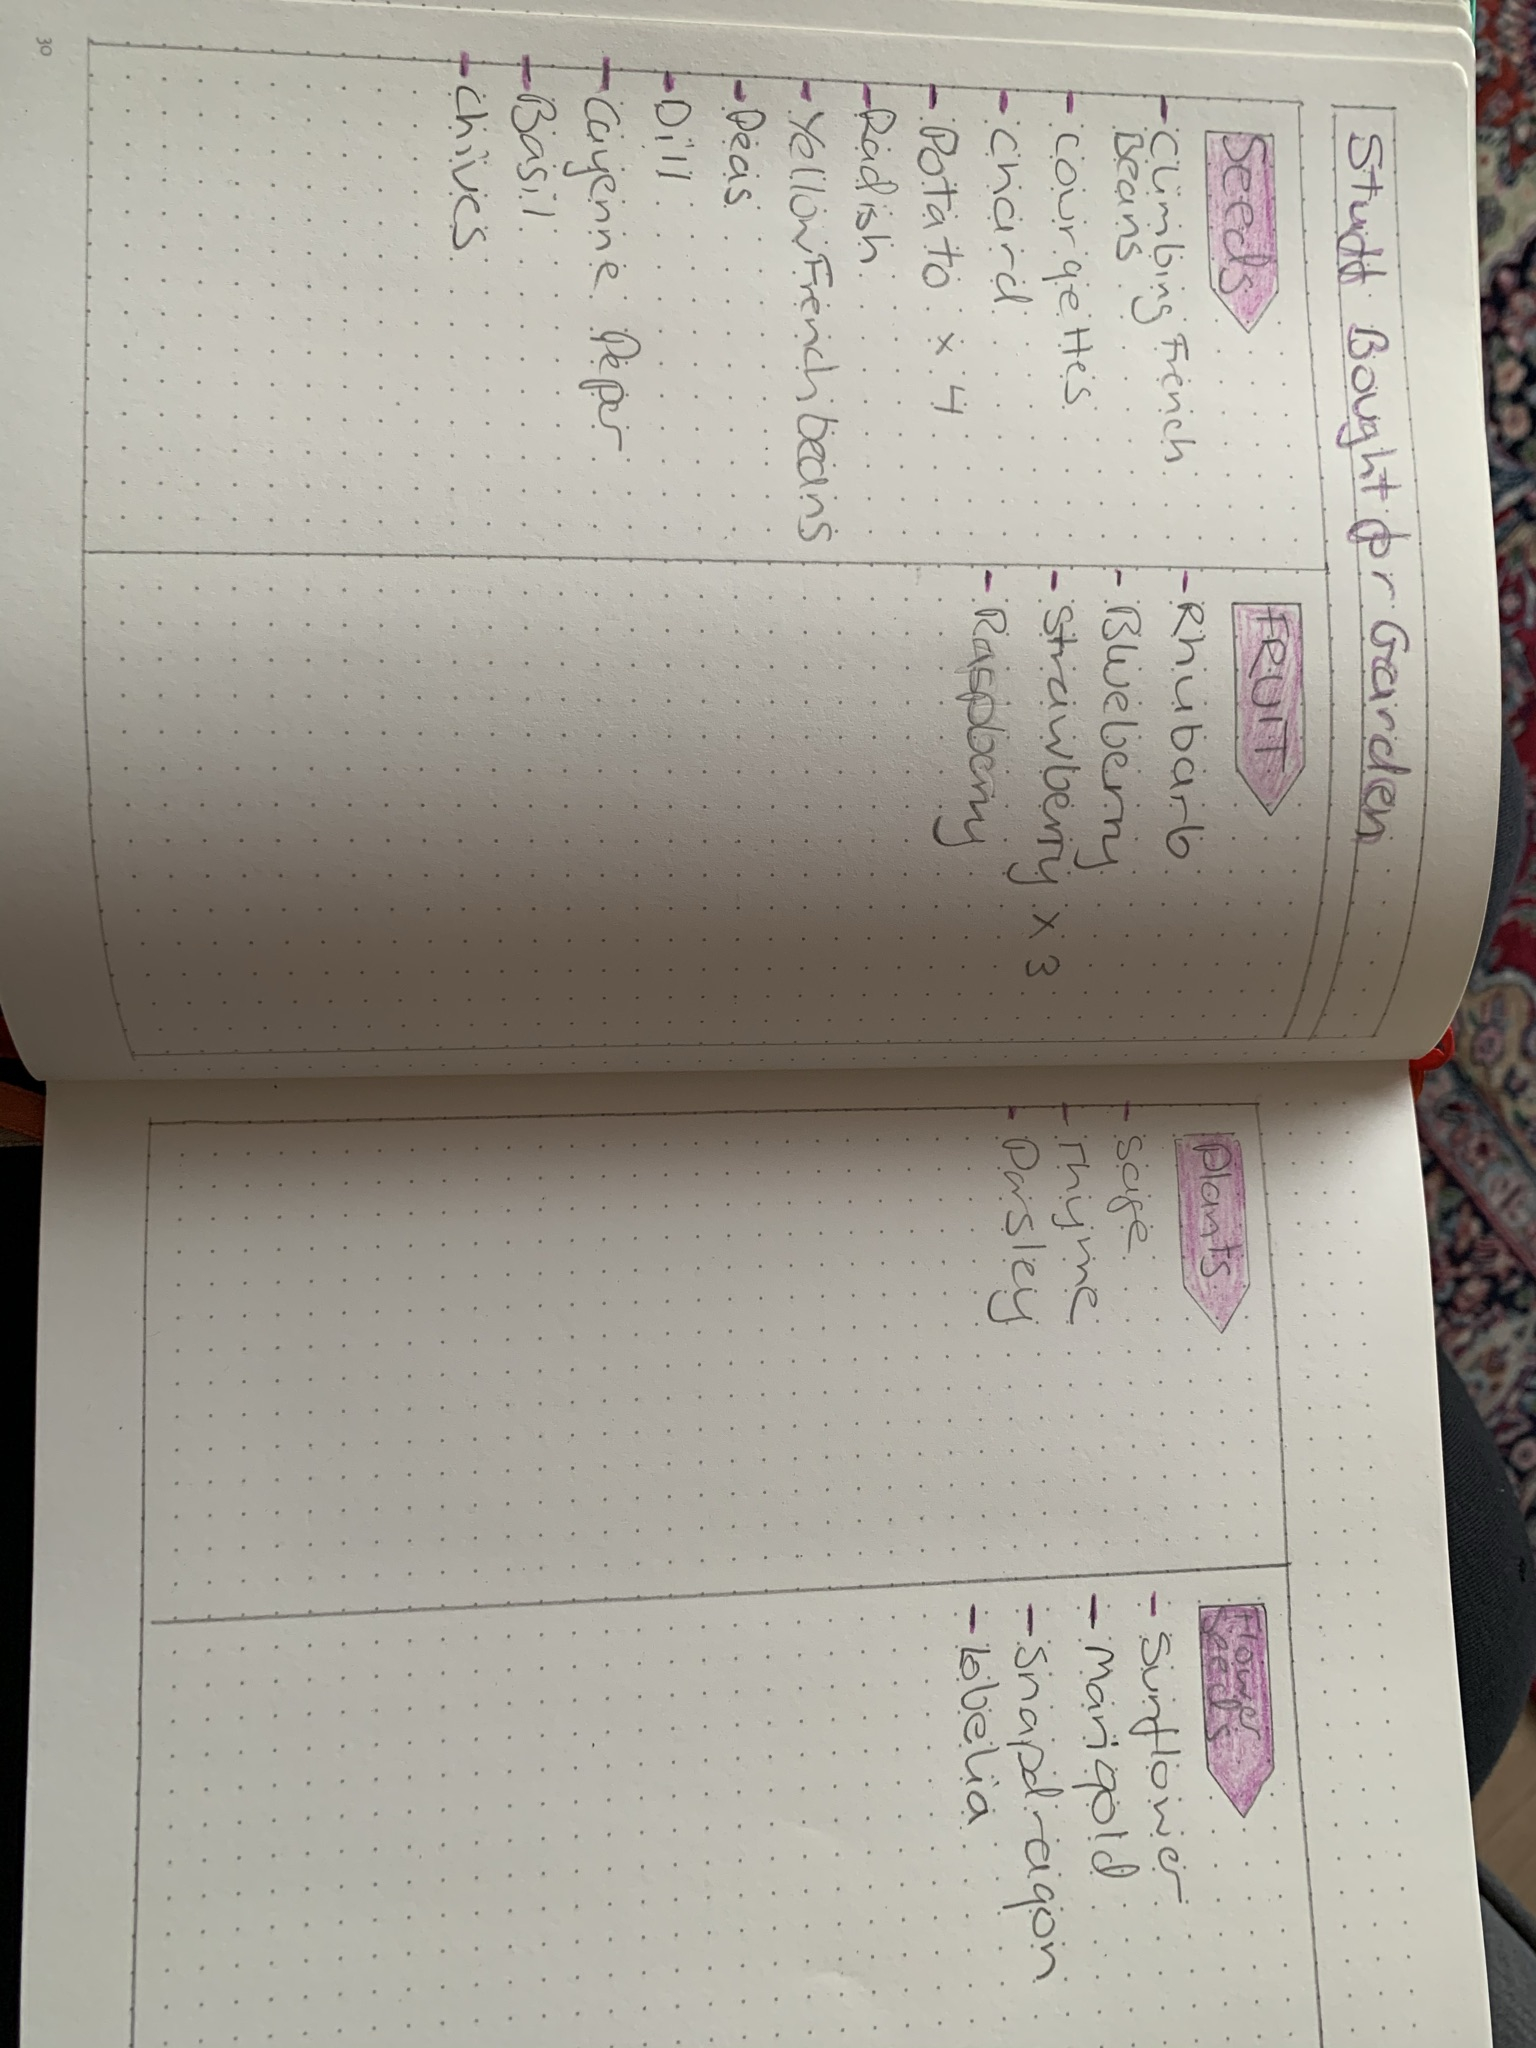 Stuff Bought for Garden
Seeds
- Climbing French
Beans
- Courgettes
- Chard
- Potato x 4
- Radish
- Yellow French beans
- Peas
- Dill
- Cayenne Peper
- Basil
- Chives
FRUIT
- Rhubarb
- Blueberry
- Strawberry x 3
- Raspberry
30
Plants
- Sage
- Thyme
- Parsley
Flower
Seeds
- Sunflower
- Marigold
- Snapdragon
- lobelia